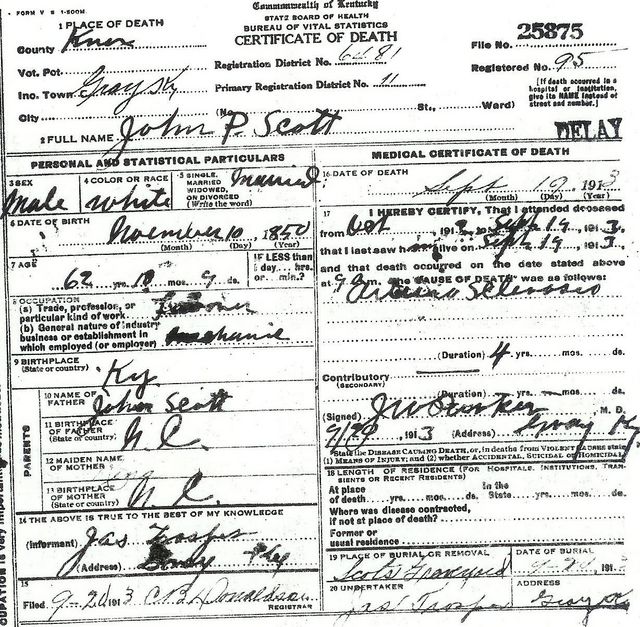 FORM V S 1-500M
Commonwealth of Kentucky
STATE BOARD OF HEALTH
BUREAU OF VITAL STATISTICS
CERTIFICATE OF DEATH
1 PLACE OF DEATH
County Knox
Vot. Pct.
Inc. Town Gray Ky
City
Registration District No. 6481
Primary Registration District No. 11
(No. St., Ward)
File No. 25875
Registered No. 95
[If death occurred in a hospital or institution, give its NAME instead of street and number.]
2 FULL NAME John P Scott
DELAY
PERSONAL AND STATISTICAL PARTICULARS
3 SEX
Male
4 COLOR OR RACE
White
5 SINGLE, MARRIED, WIDOWED, OR DIVORCED (Write the word)
Married
6 DATE OF BIRTH
November 10, 1850
(Month) (Day) (Year)
7 AGE
62 yrs. 10 mos. 9 ds.
IF LESS than 1 day.... hrs. or.... min.?
8 OCCUPATION
(a) Trade, profession, or particular kind of work
(b) General nature of industry business or establishment in which employed (or employer)
9 BIRTHPLACE
(State or country)
Ky.
PARENTS
10 NAME OF FATHER
John Scott
11 BIRTHPLACE OF FATHER
(State or country)
N.C.
12 MAIDEN NAME OF MOTHER
13 BIRTHPLACE OF MOTHER
(State or country)
N.C.
14 THE ABOVE IS TRUE TO THE BEST OF MY KNOWLEDGE
(Informant) Jas Trosper
(Address) Gray Ky
15
Filed 9-20 1913 C.B. Donaldson
REGISTRAR
MEDICAL CERTIFICATE OF DEATH
16 DATE OF DEATH
Sept 19, 1913
(Month) (Day) (Year)
17 I HEREBY CERTIFY, That I attended deceased
from Oct 191 Sept 19 1913,
that I last saw h alive on Sept 19, 1913,
and that death occurred on the date stated above
at 9 a m. The CAUSE OF DEATH was as follows:
(Duration) 4 yrs. mos. ds.
Contributory
(SECONDARY)
(Duration) yrs. mos. ds.
(Signed) M. D.
9/20 1913 (Address) Gray Ky
State the DISEASE CAUSING DEATH, or, in deaths from VIOLENT CAUSES state (1) MEANS OF INJURY; and (2) whether ACCIDENTAL, SUICIDAL or HOMICIDAL
18 LENGTH OF RESIDENCE (FOR HOSPITALS, INSTITUTIONS, TRANSIENTS OR RECENT RESIDENTS)
At place of death.....yrs.....mos.....ds. In the State.....yrs.....mos.....ds.
Where was disease contracted, if not at place of death?
Former or usual residence
19 PLACE OF BURIAL OR REMOVAL
Scots Graveyard
DATE OF BURIAL
9-20, 1913
20 UNDERTAKER
Jas Trosper
ADDRESS
Gray Ky